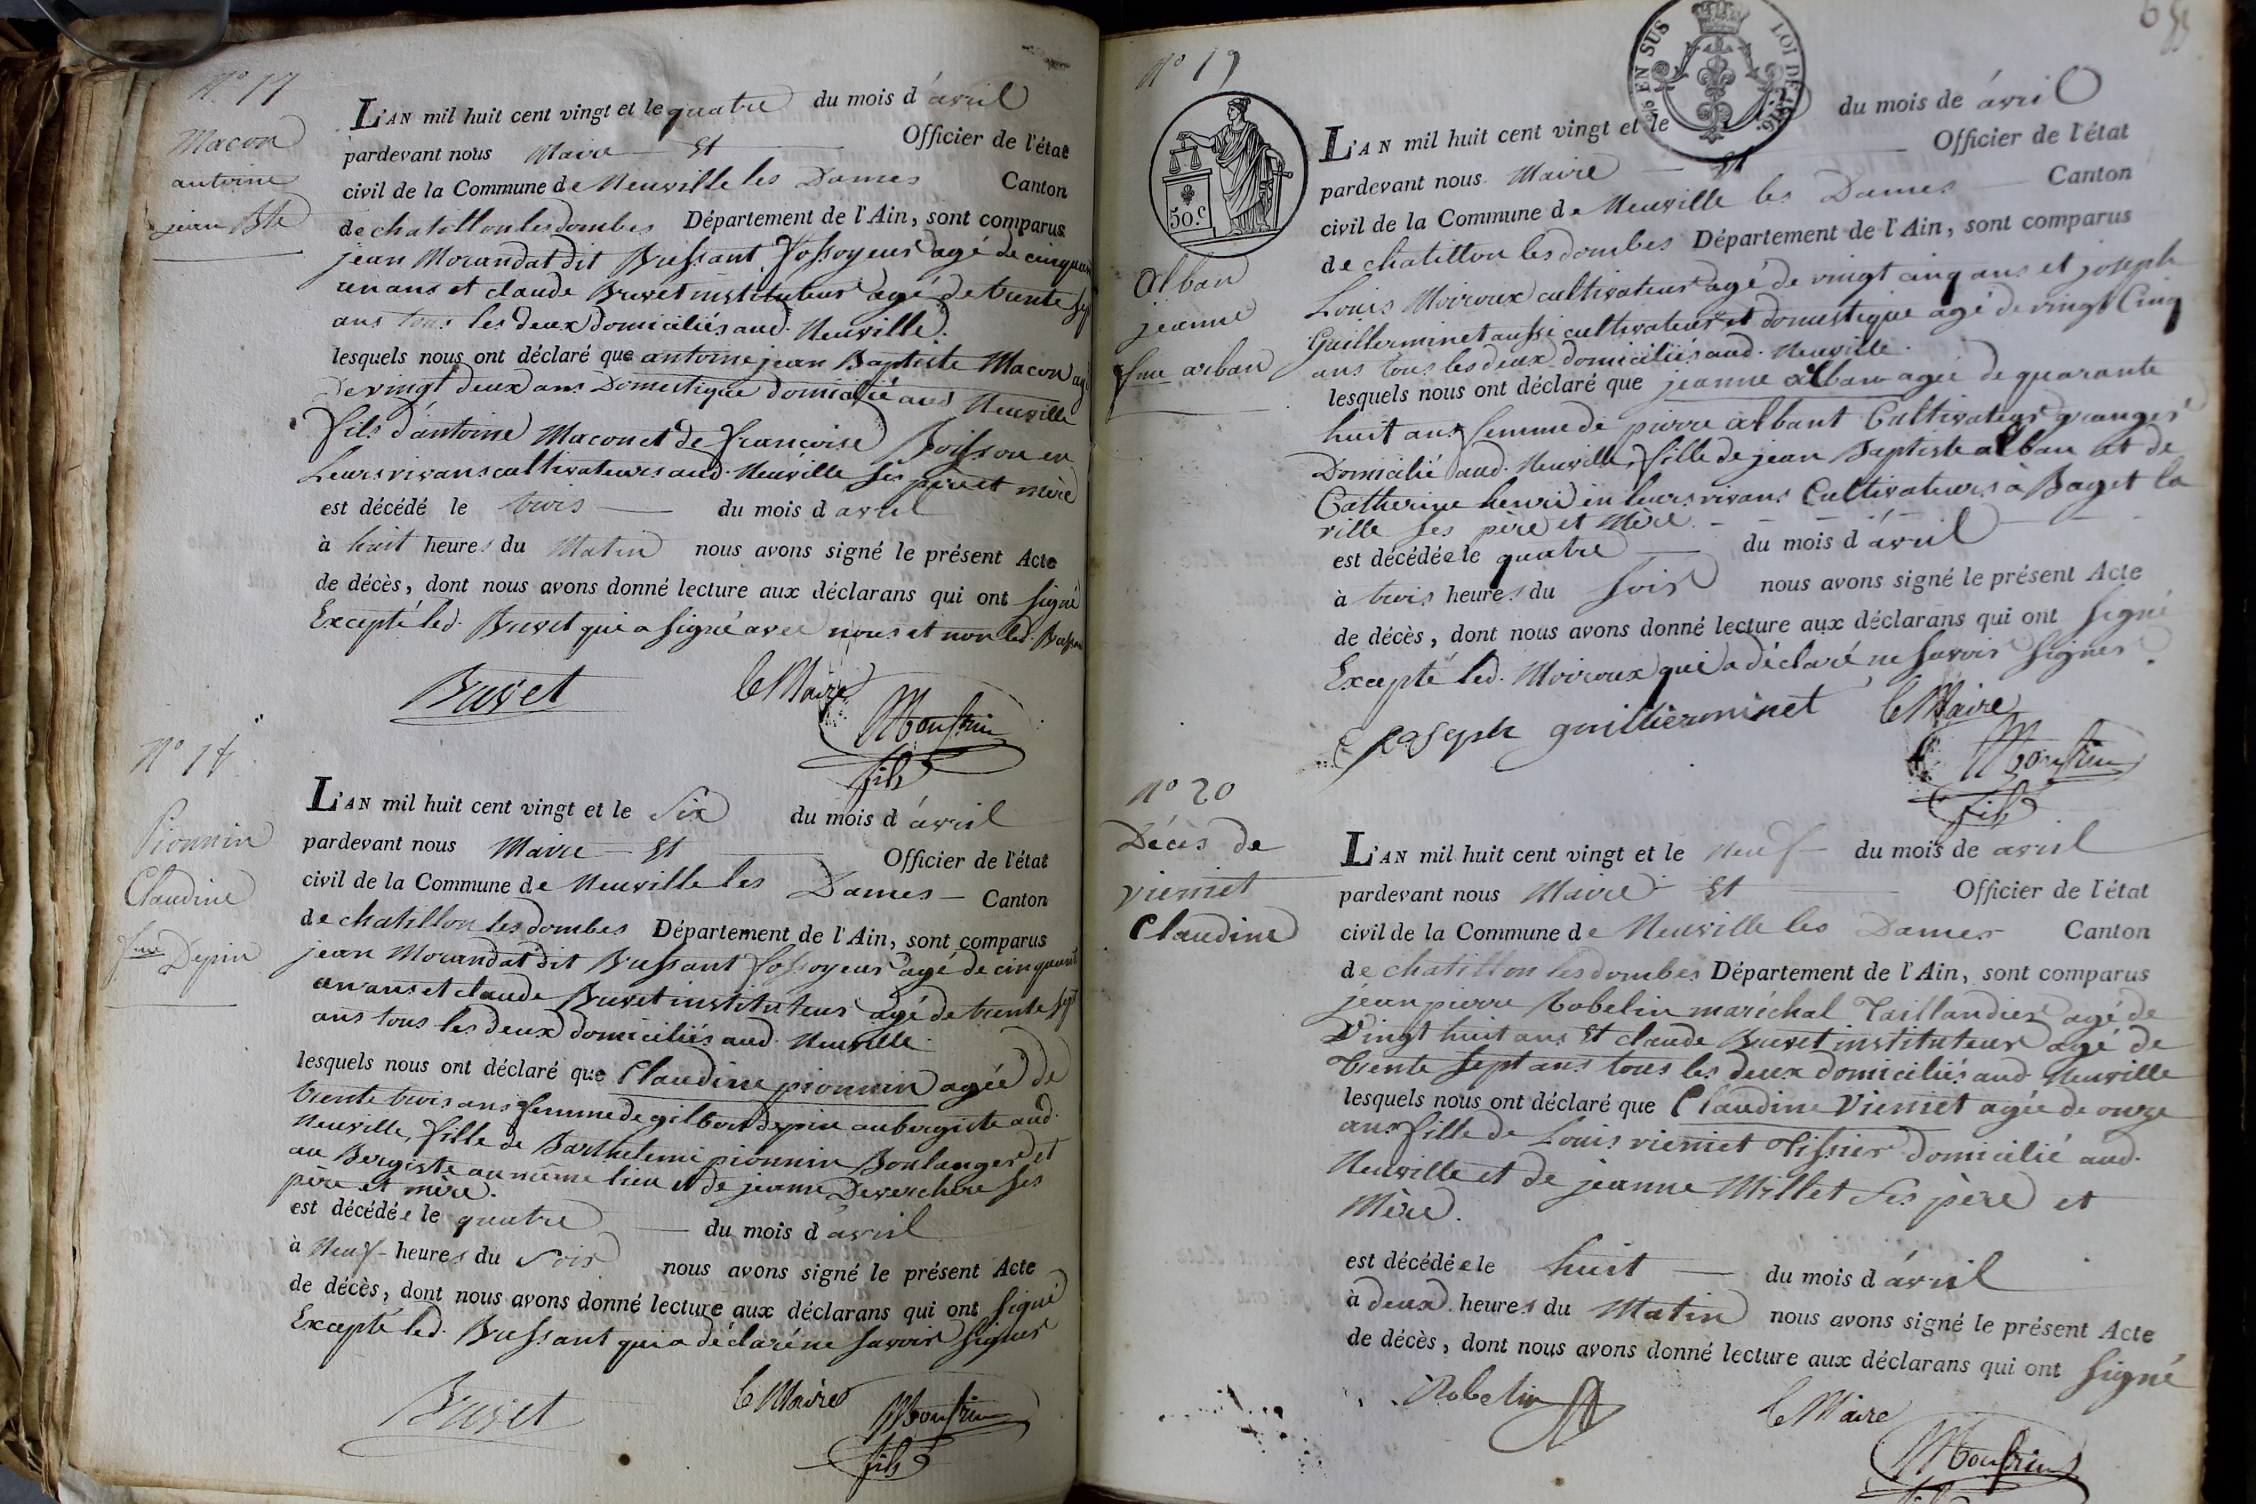 N° 17
Macon
antoine
jean Bte
L'AN mil huit cent vingt et le quatre du mois d'avril
pardevant nous Maire Et Officier de l'état
civil de la Commune de Neuville les Dames Canton
de chatillon les dombes Département de l'Ain, sont comparus
jean Morandat dit Bussant fossoyeur agé de cinquante
un ans et claude Buvet instituteur agé de trente sept
ans tous les deux domiciliés aud. Neuville.
lesquels nous ont déclaré que antoine jean Baptiste Macon agé
De vingt deux ans Domestique domicilié aud Neuville
fils d'antoine Macon et de francoise Boisson en
Leurs vivans cultivateurs aud. Neuville ses père et mère
est décédé le trois du mois d'avril
à huit heures du Matin nous avons signé le présent Acte
de décès, dont nous avons donné lecture aux déclarans qui ont signé
Excepté led. Buvet qui a signé avec nous et non led. Bussant
Buvet le Maire
fils
N° 18
Pionnin
Claudine
fme Depin
L'AN mil huit cent vingt et le Six du mois d'avril
pardevant nous Maire Et Officier de l'état
civil de la Commune de Neuville les Dames Canton
de chatillon les dombes Département de l'Ain, sont comparus
jean Morandat dit Bussant fossoyeur agé de cinquante
un ans et claude Buvet instituteur agé de trente sept
ans tous les deux domiciliés aud. Neuville.
lesquels nous ont déclaré que Claudine pionnin agée de
trente trois ans femme de gilbert depin aubergiste aud.
Neuville, fille de Barthelemi pionnin Boulanger et
au Bergiste au même lieu et de jeanne Deverchere ses
père et mère.
est décédée le quatre du mois d'avril
à Neuf heures du Soir nous avons signé le présent Acte
de décès, dont nous avons donné lecture aux déclarans qui ont signé
Excepté led. Bussant qui a déclaré ne savoir signer
Buvet le Maire
fils
N° 19
EN SUS LOI DE 1816.
50.c
alban
jeanne
fme arban
L'AN mil huit cent vingt et le du mois de avril
pardevant nous Maire Et Officier de l'état
civil de la Commune de Neuville les Dames Canton
de chatillon les dombes Département de l'Ain, sont comparus
Louis Moiroux cultivateur agé de vingt cinq ans et joseph
Guillerminet aussi cultivateur et domestique agé de vingt Cinq
ans tous les deux domiciliés aud. Neuville.
lesquels nous ont déclaré que jeanne alban agée de quarante
huit ans femme de pierre albant Cultivateur granger
Domicilié aud. Neuville, fille de jean Baptiste alban et de
Catherine henri en leurs vivans Cultivateurs à Baget la
ville ses père et Mère
est décédée le quatre du mois d'avril
à trois heures du soir nous avons signé le présent Acte
de décès, dont nous avons donné lecture aux déclarans qui ont signé
Excepté led. Moiroux qui a déclaré ne savoir signer.
joseph guillierminet le Maire
fils
N° 20
Décès de
viennet
Claudine
L'AN mil huit cent vingt et le Neuf du mois de avril
pardevant nous Maire Et Officier de l'état
civil de la Commune de Neuville les Dames Canton
de chatillon les dombes Département de l'Ain, sont comparus
jean pierre Robelin maréchal Taillandier agé de
Vingt huit ans Et claude Buvet instituteur agé de
trente sept ans tous les deux domiciliés aud Neuville
lesquels nous ont déclaré que Claudine Viennet agée de onze
ans fille de Louis viennet Tissier domicilié aud.
Neuville et de jeanne Millet Ses père et
Mère.
est décédée le huit du mois d'avril
à deux heures du Matin nous avons signé le présent Acte
de décès, dont nous avons donné lecture aux déclarans qui ont signé
Robelin le Maire